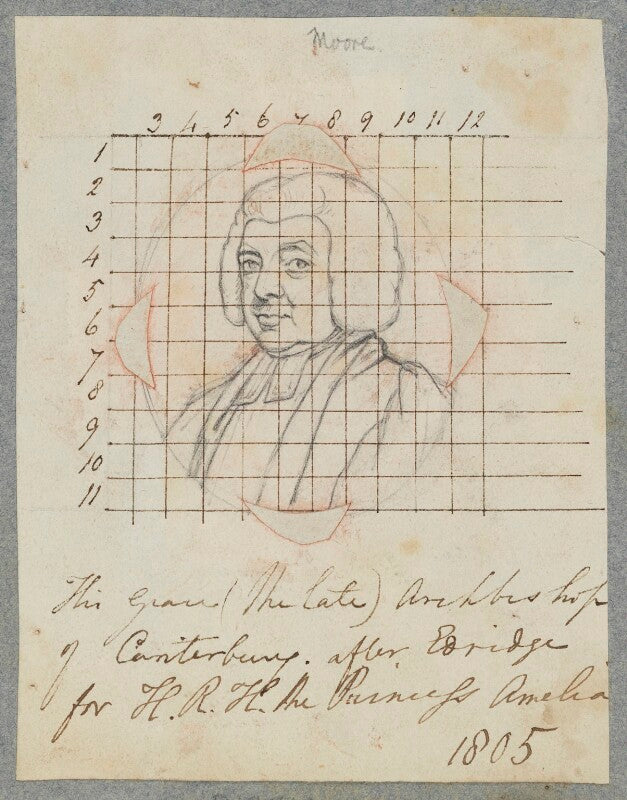 Moore.
3 4 5 6 7 8 9 10 11 12
1
2
3
4
5
6
7
8
9
10
11
His Grace (The late) Archbishop
of Canterbury. after Edridge
for H. R. H. the Princess Amelia
1805